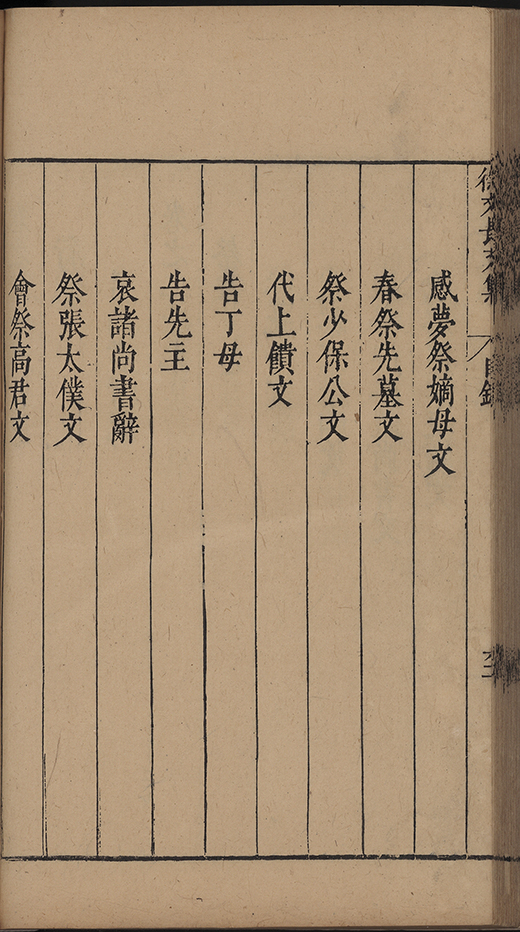 徐文長文集 目錄
感夢祭嫡母文
春祭先墓文
祭少保公文
代上饋文
告丁母
告先主
哀諸尚書辭
祭張太僕文
會祭高君文